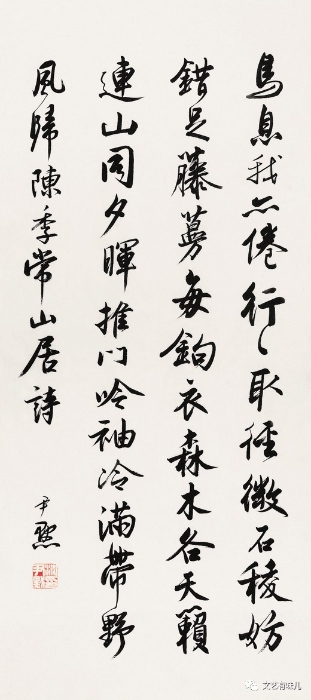 鳥息我亦倦行〻取徑微石稜妨
錯足藤蔓每鉤衣森木各天籟
連山同夕暉推門吟袖冷滿帶野
風歸陳季常山居詩
尹默
文艺有味儿